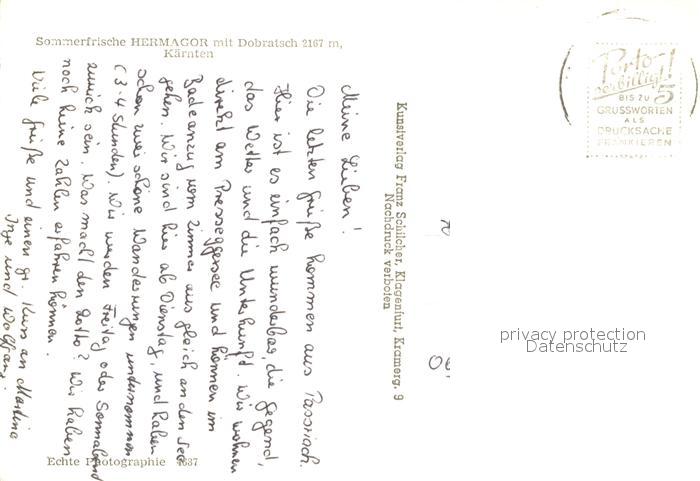 Sommerfrische HERMAGOR mit Dobratsch 2167 m,
Kärnten
Meine Lieben!
Die letzten Grüße kommen aus
Hier ist es einfach wunderbar, die Gegend,
das Wetter und die Unterkunft. Wir wohnen
direkt am Presseggersee und können im
Badeanzug vom Zimmer aus gleich an den See
gehen. Wir sind hier ab Dienstag, und haben
schon zwei schöne Wanderungen unternommen
(3-4 Stunden). Wir werden Freitag oder Sonnabend
zurück sein. Was macht den Lotto? Wir haben
noch keine Zahlen erfahren können.
Viele Grüße und einen gr. Kuss an Martina
Inge und Wolfgang.
Echte Photographie 4637
Kunstverlag Franz Schilcher, Klagenfurt, Kramerg. 9
Nachdruck verboten
Porto
verbilligt!
BIS ZU 5
GRUSSWORTEN
ALS
DRUCKSACHE
FRANKIEREN
privacy protection
Datenschutz